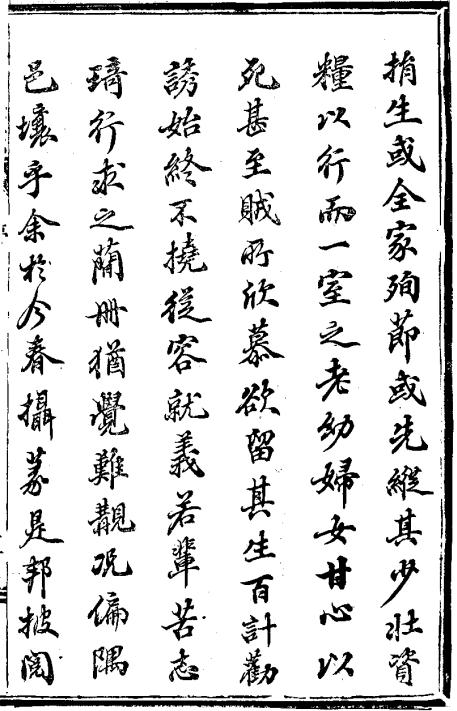 捐生或全家殉節或先縱其少壯資
糧以行而一室之老幼婦女甘心以
死甚至賊所欣慕欲留其生百計勸
誘始終不撓從容就義若輩苦志
琦行求之簡冊猶覺難覯况偏隅
邑壤乎余於今春攝篆是邦披閱